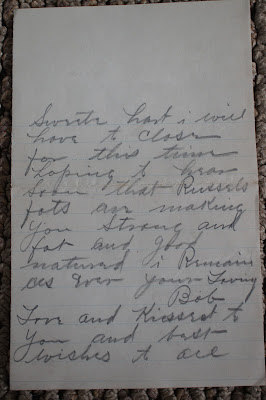 Sweite hart i will
have to close
for this time
hoping to hear
soon that Russels
fots are making
you strong and
fat and good
natured i Remain
as ever your Loving
Bob
Love and Kissest to
you and best
wishes to all